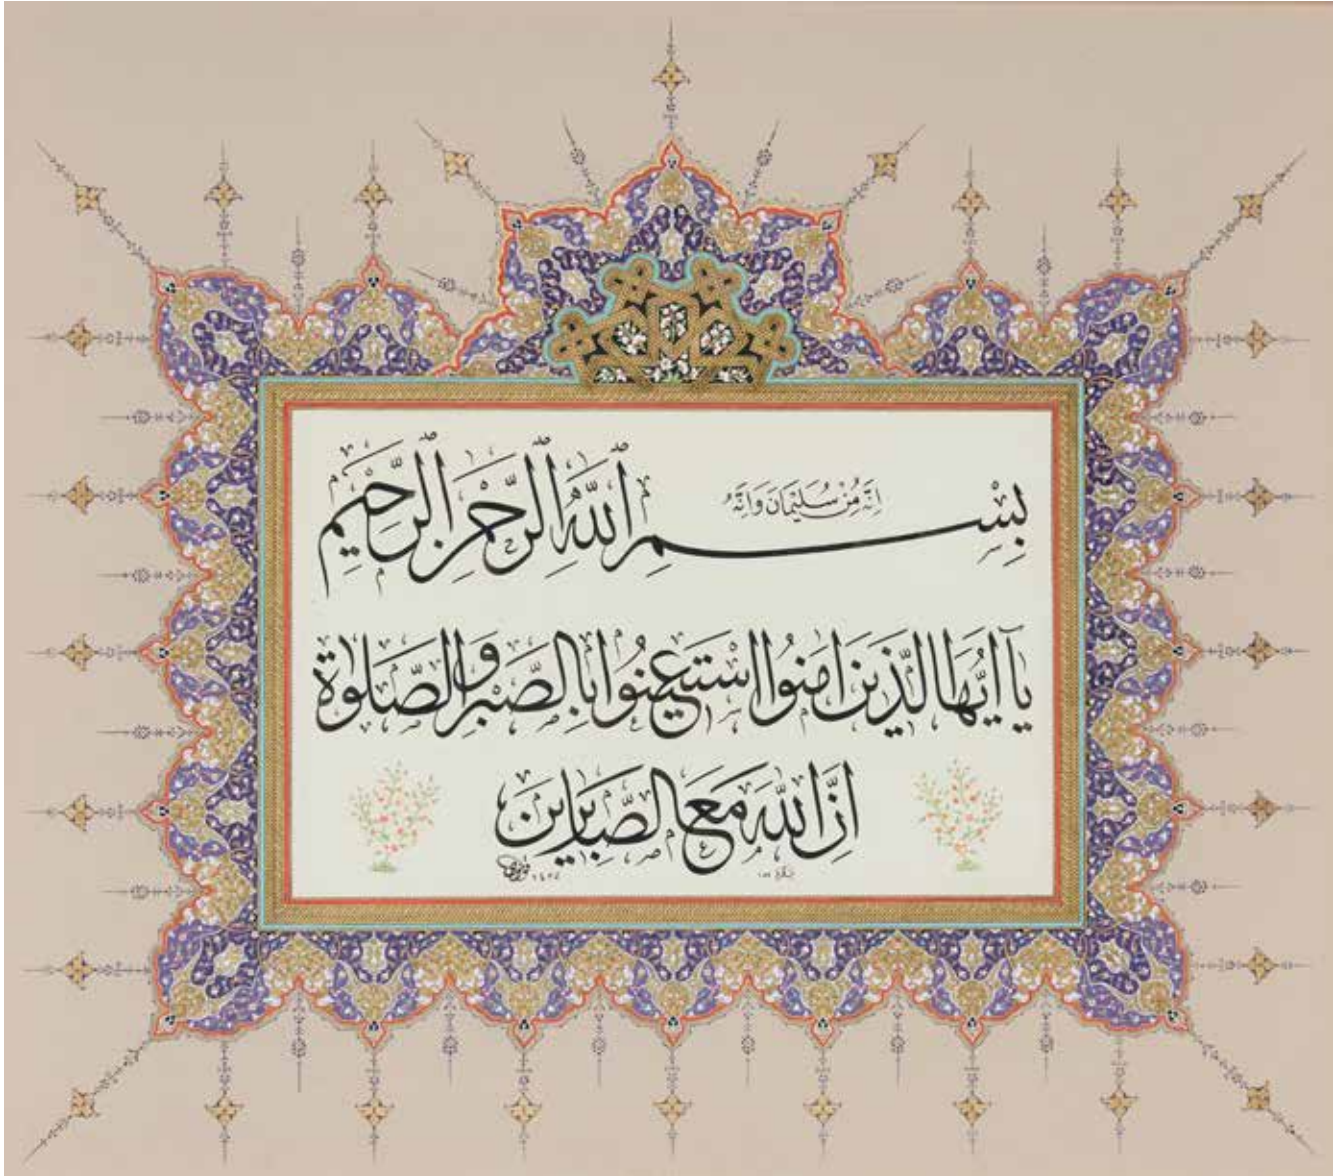 اِنَّهُ مِنْ سُلَيْمَانَ وَاِنَّهُ
بِسْمِ اللّٰهِ الرَّحْمٰنِ الرَّحِيمِ
يَٓا اَيُّهَا الَّذٖينَ اٰمَنُوا اسْتَعٖينُوا بِالصَّبْرِ وَالصَّلٰوةِ
اِنَّ اللّٰهَ مَعَ الصَّابِرٖينَ